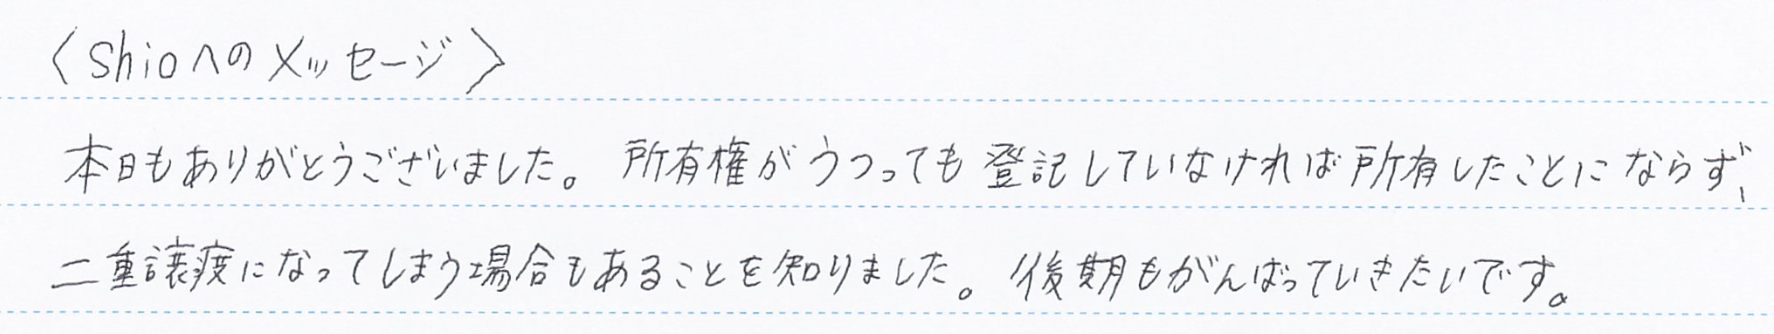 〈Shioへのメッセージ〉
本日もありがとうございました。所有権がうつっても登記していなければ所有したことにならず、
二重譲渡になってしまう場合もあることを知りました。後期もがんばっていきたいです。